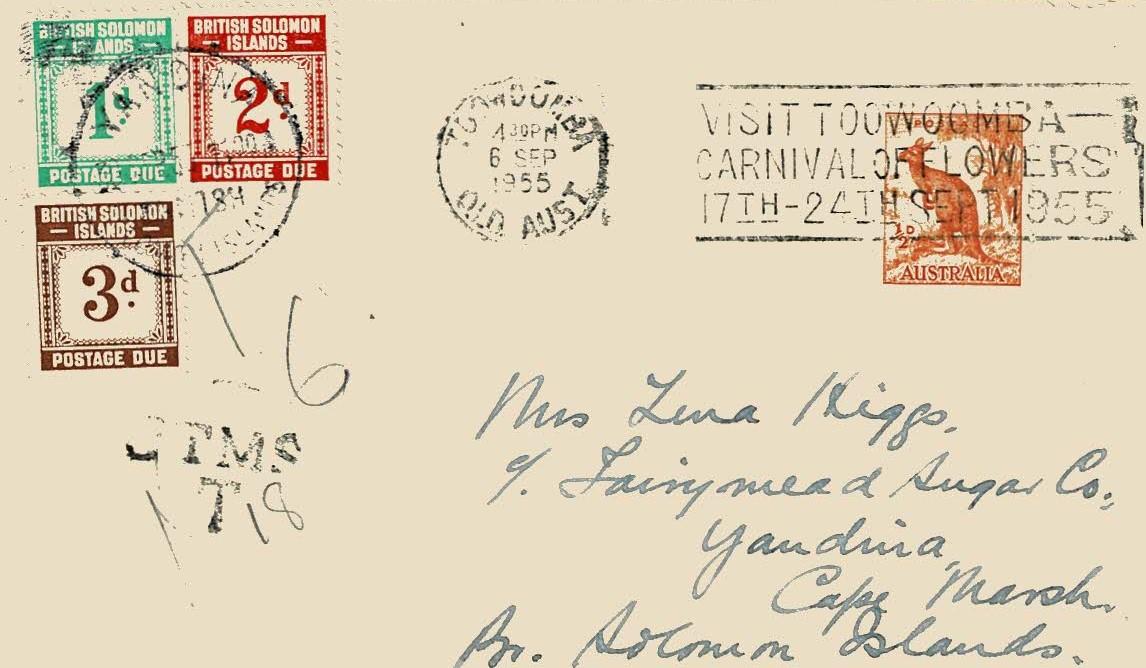 BRITISH SOLOMON
— ISLANDS —
1d
POSTAGE DUE
BRITISH SOLOMON
ISLANDS —
2d.
POSTAGE DUE
BRITISH SOLOMON
— ISLANDS —
3d.
POSTAGE DUE
YANDINA
TOOWOOMBA
4 30PM
6 SEP
1955
QLD AUST
VISIT TOOWOOMBA—
CARNIVAL OF FLOWERS
17TH-24TH SEPT 1955
½D
AUSTRALIA
6
T
18
Mrs Lena Higgs.
c/. Fairymead Sugar Co.,
Yandina,
Cape Marsh.
Br. Solomon Islands.